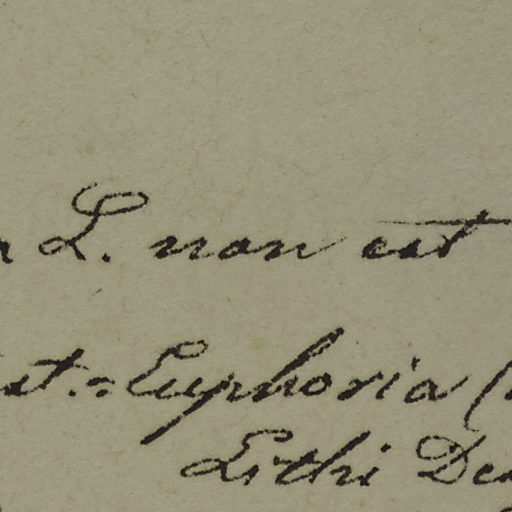 L. non est
st. = Euphoria (
Lithi De